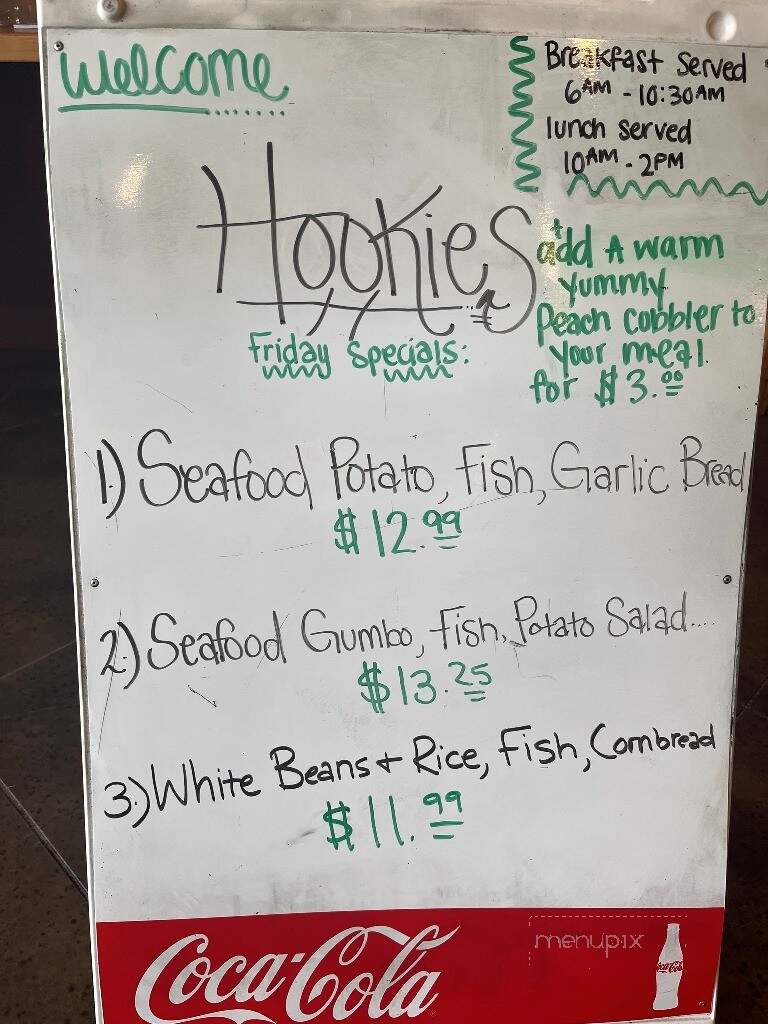 Welcome
Breakfast Served
6AM - 10:30AM
lunch served
10AM - 2PM
Hookies
add A warm
yummy
Peach cobbler to
your meal.
for $3.00
Friday Specials:
1) Seafood Potato, Fish, Garlic Bread
$12.99
2) Seafood Gumbo, Fish, Potato Salad....
$13.25
3.) White Beans + Rice, Fish, Cornbread
$11.99
menupix
Coca-Cola
Coca-Cola